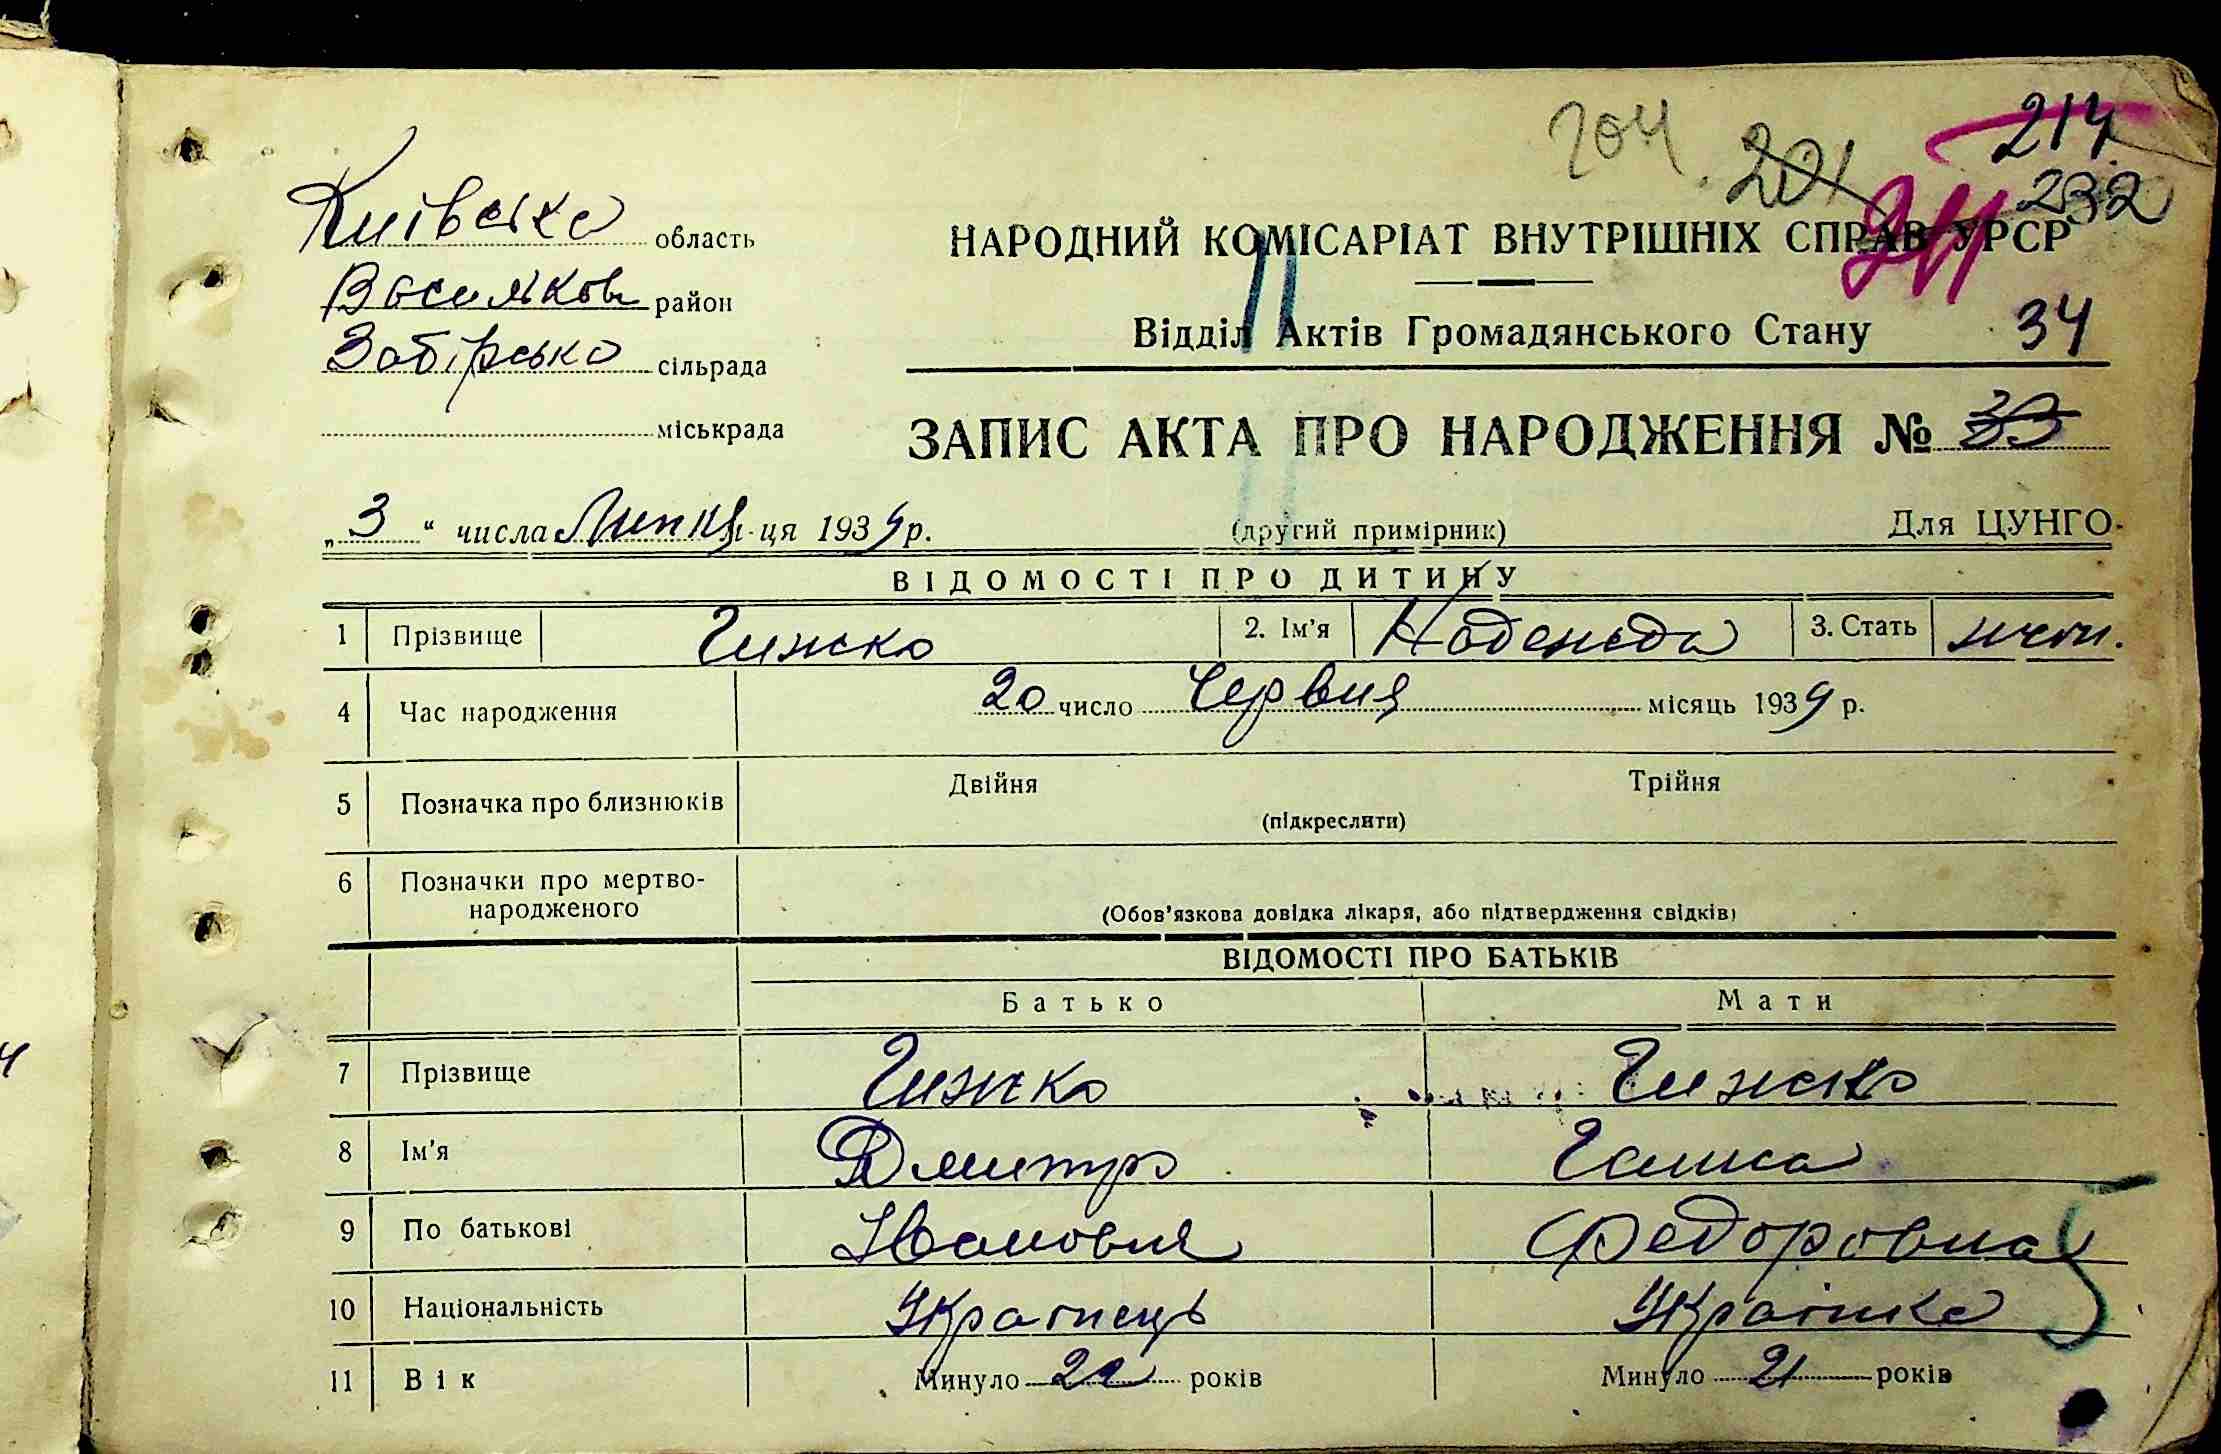 204 201 217
232
Київська область
НАРОДНИЙ КОМІСАРІАТ ВНУТРІШНІХ СПРАВ УРСР
Васильков район
Забірсько сільрада
Відділ Актів Громадянського Стану 34
міськрада
ЗАПИС АКТА ПРО НАРОДЖЕННЯ № 33
„3“ числа Липця ц-ця 1939 р. (другий примірник) Для ЦУНГО
ВІДОМОСТІ ПРО ДИТИНУ
1 Прізвище Гижко 2. Ім'я Надежда 3. Стать
4 Час народження 20 число Червня місяць 1939 р.
5 Позначка про близнюків Двійня Трійня
(підкреслити)
6 Позначки про мертво-
народженого (Обов'язкова довідка лікаря, або підтвердження свідків)
ВІДОМОСТІ ПРО БАТЬКІВ
Батько Мати
7 Прізвище Гижко Гижко
8 Ім'я Дмитро Ганна
9 По батькові Іванович Федоровна
10 Національність Українець Українка
11 Вік Минуло 22 років Минуло 21 років